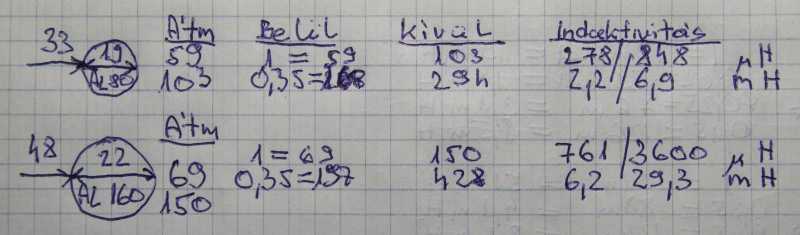 33 19 Átm Belül Kívül Induktivitás
59 1 = 59 103 278/848 μH
AL 80 103 0,35=168 294 2,2/6,9 mH
Átm
48 22 69 1 = 69 150 761/3600 μH
AL 160 150 0,35=197 428 6,2/29,3 mH